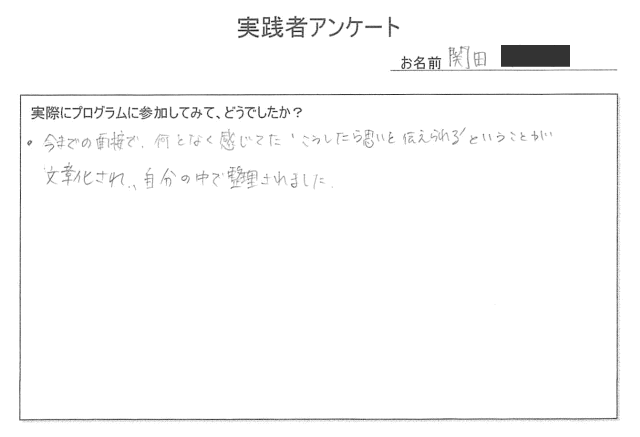 実践者アンケート
お名前 関田
実際にプログラムに参加してみて、どうでしたか？
• 今までの面接で、何となく感じてた 'こうしたら思いを伝えられる' ということが
文章化され、自分の中で整理されました。